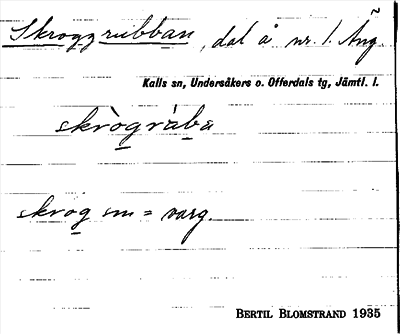 Skroggrubban, dal å nr. 1. Äng.
Kalls sn, Undersåkers o. Offerdals tg, Jämtl. l.
skrògrùba
skrog sm = varg.
BERTIL BLOMSTRAND 1935